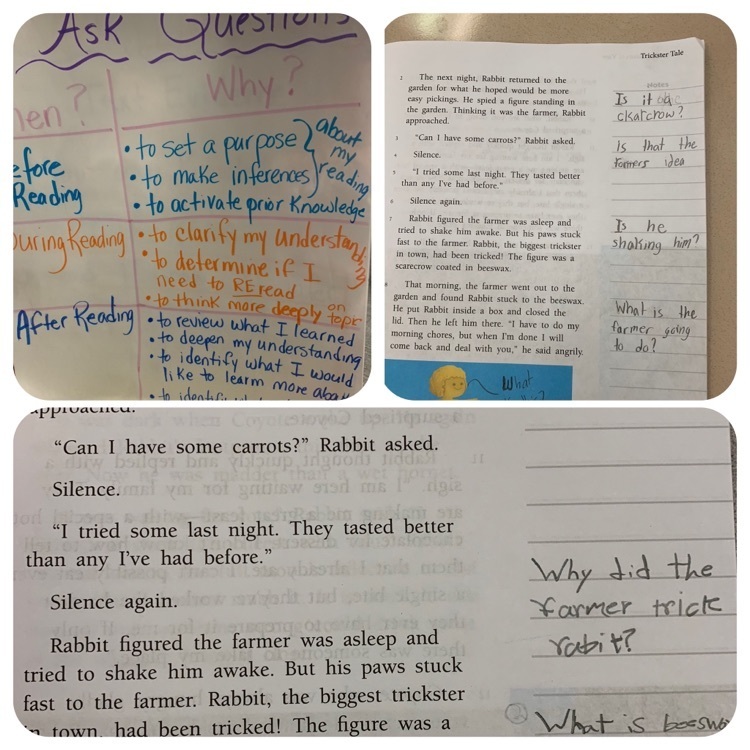 Ask Questions
Why?
Reading
• to set a purpose
• to make inferences
• to activate prior knowledge
about
my
reading
During Reading
• to clarify my understanding
• to determine if I
need to REread
• to think more deeply on
topic
After Reading
• to review what I learned
• to deepen my understanding
• to identify what I would
like to learn more
Trickster Tale
Notes
2 The next night, Rabbit returned to the
garden for what he hoped would be more
easy pickings. He spied a figure standing in
the garden. Thinking it was the farmer, Rabbit
approached.
3 "Can I have some carrots?" Rabbit asked.
4 Silence.
5 "I tried some last night. They tasted better
than any I've had before."
6 Silence again.
7 Rabbit figured the farmer was asleep and
tried to shake him awake. But his paws stuck
fast to the farmer. Rabbit, the biggest trickster
in town, had been tricked! The figure was a
scarecrow coated in beeswax.
That morning, the farmer went out to the
garden and found Rabbit stuck to the beeswax.
He put Rabbit inside a box and closed the
lid. Then he left him there. "I have to do my
morning chores, but when I'm done I will
come back and deal with you," he said angrily.
Is it a
ckatcrow?
Is that the
formers idea
Is he
shaking him?
What is the
farmer going
to do?
What
approached.
"Can I have some carrots?" Rabbit asked.
Silence.
"I tried some last night. They tasted better
than any I've had before."
Silence again.
Rabbit figured the farmer was asleep and
tried to shake him awake. But his paws stuck
fast to the farmer. Rabbit, the biggest trickster
in town, had been tricked! The figure was a
Why did the
farmer trick
rabit?
What is